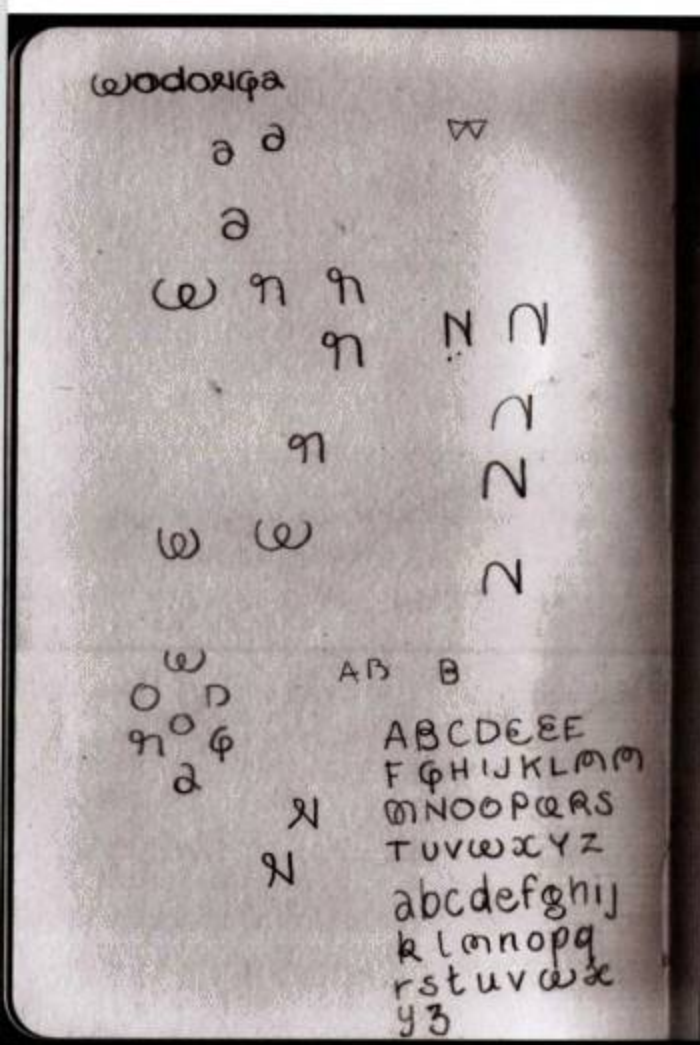 wodonga
a a
a
w n n
n
N N
N
n
N
w w
N
w
A B B
O D
n O G
a
A B C D E E E
F G H I J K L M M
N
M N O O P Q R S
N
T U V W X Y Z
a b c d e f g h i j
k l m n o p q
r s t u v w x
y z